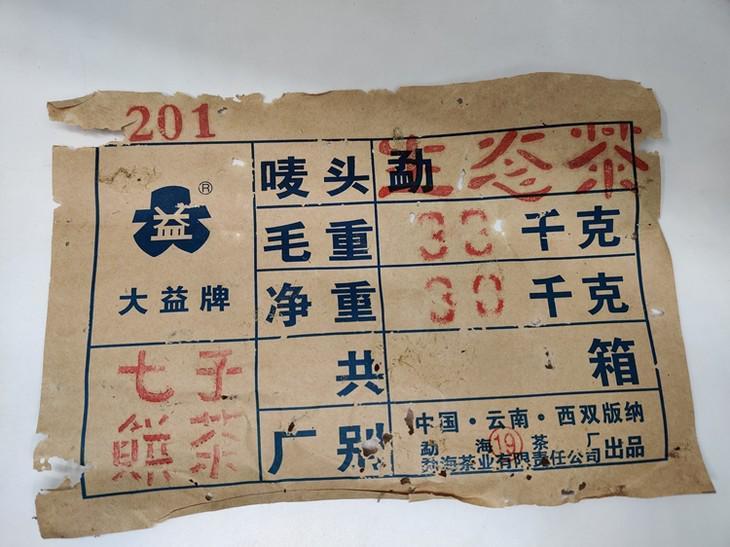 201
益®
大益牌
唛头 勐 生态茶
毛重 33 千克
净重 30 千克
七子
餅茶
共 箱
厂别
中国·云南·西双版纳
勐海茶厂
19
勐海茶业有限责任公司 出品